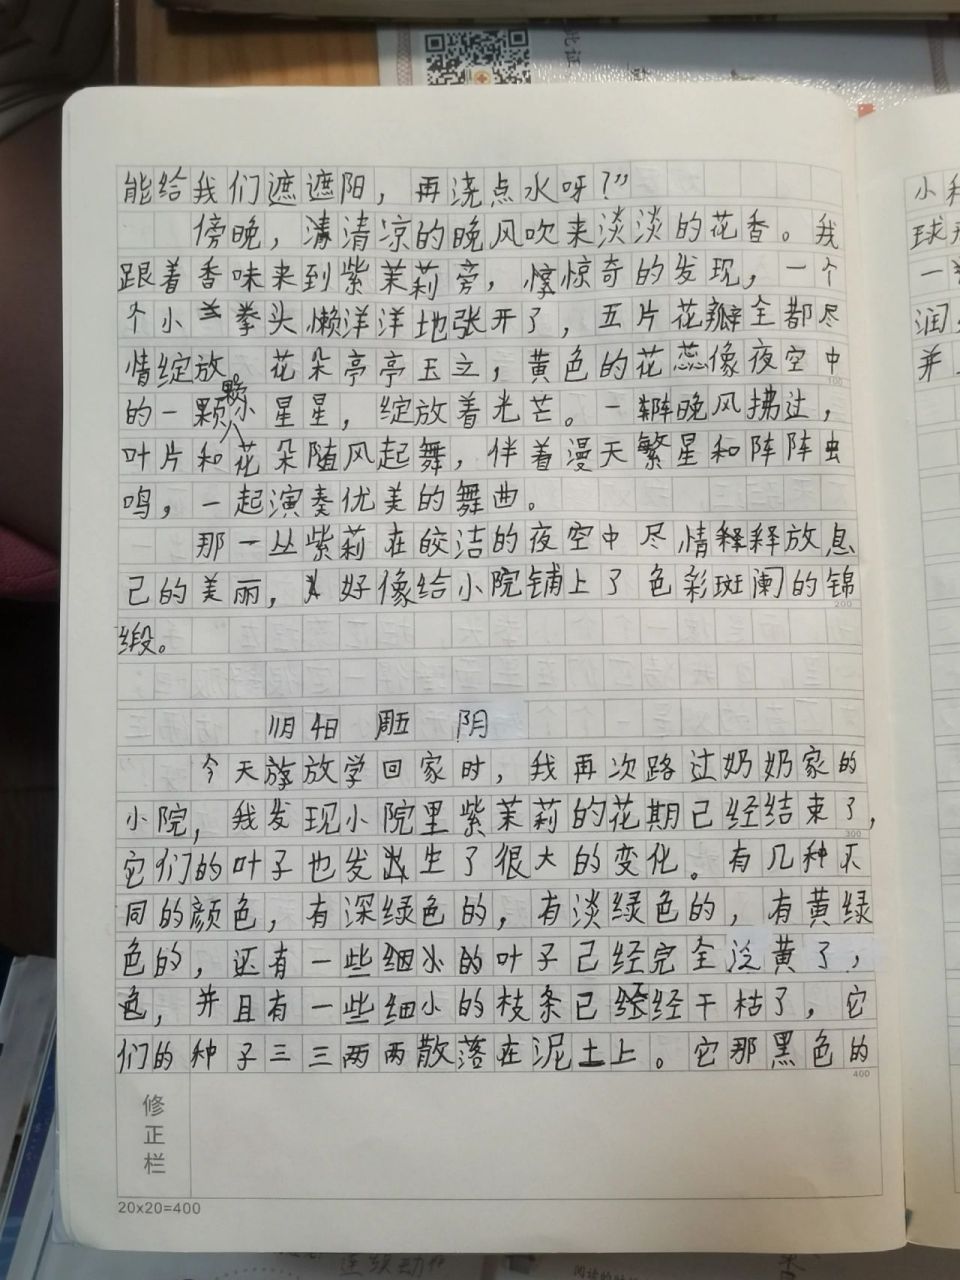 能给我们遮遮阳，再浇点水呀？”
傍晚，清清凉的晚风吹来淡淡的花香。我
跟着香味来到紫茉莉旁，惊惊奇的发现，一个
个小拳头懒洋洋地张开了，五片花瓣全都尽
情绽放。花朵亭亭玉立，黄色的花蕊像夜空中
的一颗颗小星星，绽放着光芒。一阵阵晚风拂过，
叶片和花朵随风起舞，伴着漫天繁星和阵阵虫
鸣，一起演奏优美的舞曲。
那一丛紫莉在皎洁的夜空中尽情释释放息
己的美丽，好像给小院铺上了色彩斑阑的锦
缎。
11月4日 周五 阴
今天放学回家时，我再次路过奶奶家的
小院，我发现小院里紫茉莉的花期已经结束了，
它们的叶子也发生了很大的变化。有几种不
同的颜色，有深绿色的，有淡绿色的，有黄绿
色的，还有一些细小的叶子已经完全泛黄了，
色，并且有一些细小的枝条已经经干枯了，它
们的种子三三两两散落在泥土上。它那黑色的
100
200
300
400
修正栏
20x20=400
小
球
一
润
并